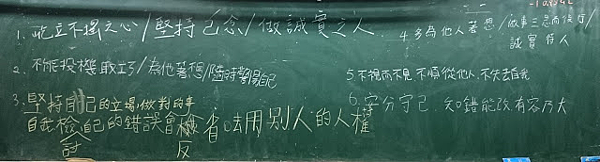 1. 屹立不搖之心/堅持己念/做誠實之人
4.多為他人著想/做事三思而後行/
誠實待人
2. 不能投機取巧/為他著想/隨時
5.不視而不見 不順從他人 不失去自我
3. 堅持自己的立場,做對的事
自我檢 自己的錯誤會 省 法用別人的人權
討
檢
反
6. 安分守己 知錯能改 有容乃大